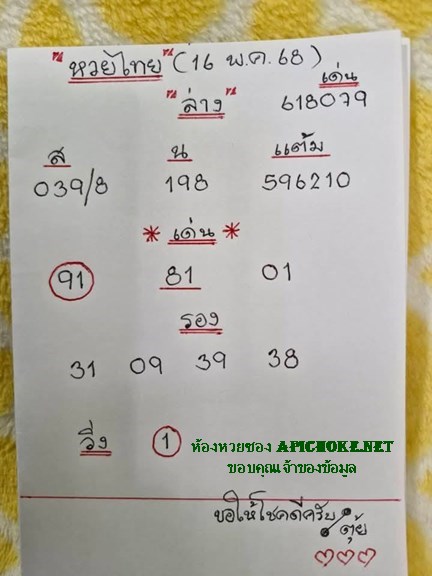 "หวยไทย" (16 พ.ค. 68)
เด่น
"ล่าง" 618079
ส น แต้ม
039/8 198 596210
* เด่น *
91 81 01
รอง
31 09 39 38
วิ่ง 1 ห้องหวยซอง APICHOKE.NET
ขอบคุณเจ้าของข้อมูล
ขอให้โชคดีครับ
ตุ้ย